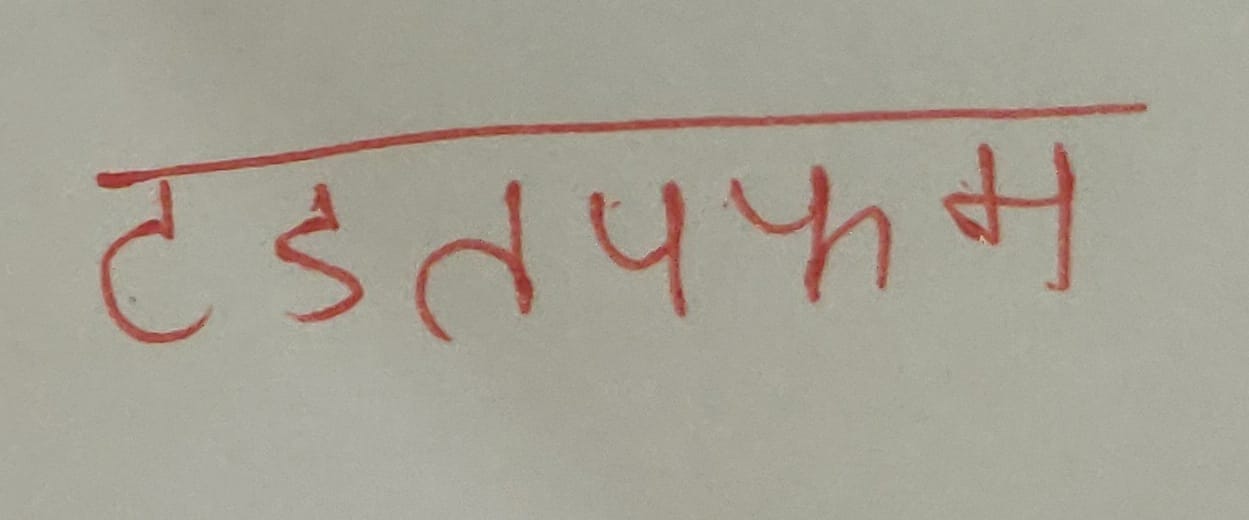 टडतपफम